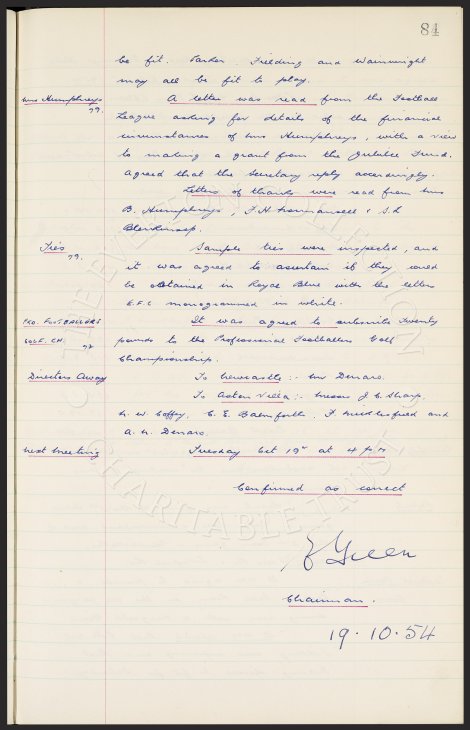 84
be fit. Fielding and Wainwright
may all be fit to play.
Mrs Humphreys 79. A letter was read from the Football
League asking for details of the financial
circumstances of Mrs Humphreys, with a view
to making a grant from the Jubilee Fund.
Agreed that the Secretary reply accordingly.
Letters of thanks were read from Mrs
B. Humphreys, &
Blenkinsop.
Ties 79. Sample ties were inspected, and
it was agreed to ascertain if they could
be obtained in Royal Blue with the letters
E.F.C monogrammed in white.
PRO. FOOTBALLERS It was agreed to subscribe Twenty
GOLF. CH. pounds to the Professional Footballers Golf
Championship.
Directors Away To Newcastle :- Mr Denaro.
To Aston Villa :- Messrs J. C. Sharp,
N. W. Coffey, C. E. Balmforth, F. Micklesfield and
A. H. Denaro.
Next Meeting Tuesday Oct 19th at 4 pm
Confirmed as correct
Green
Chairman.
19.10.54
THE EVERTON COLLECTION
CHARITABLE TRUST